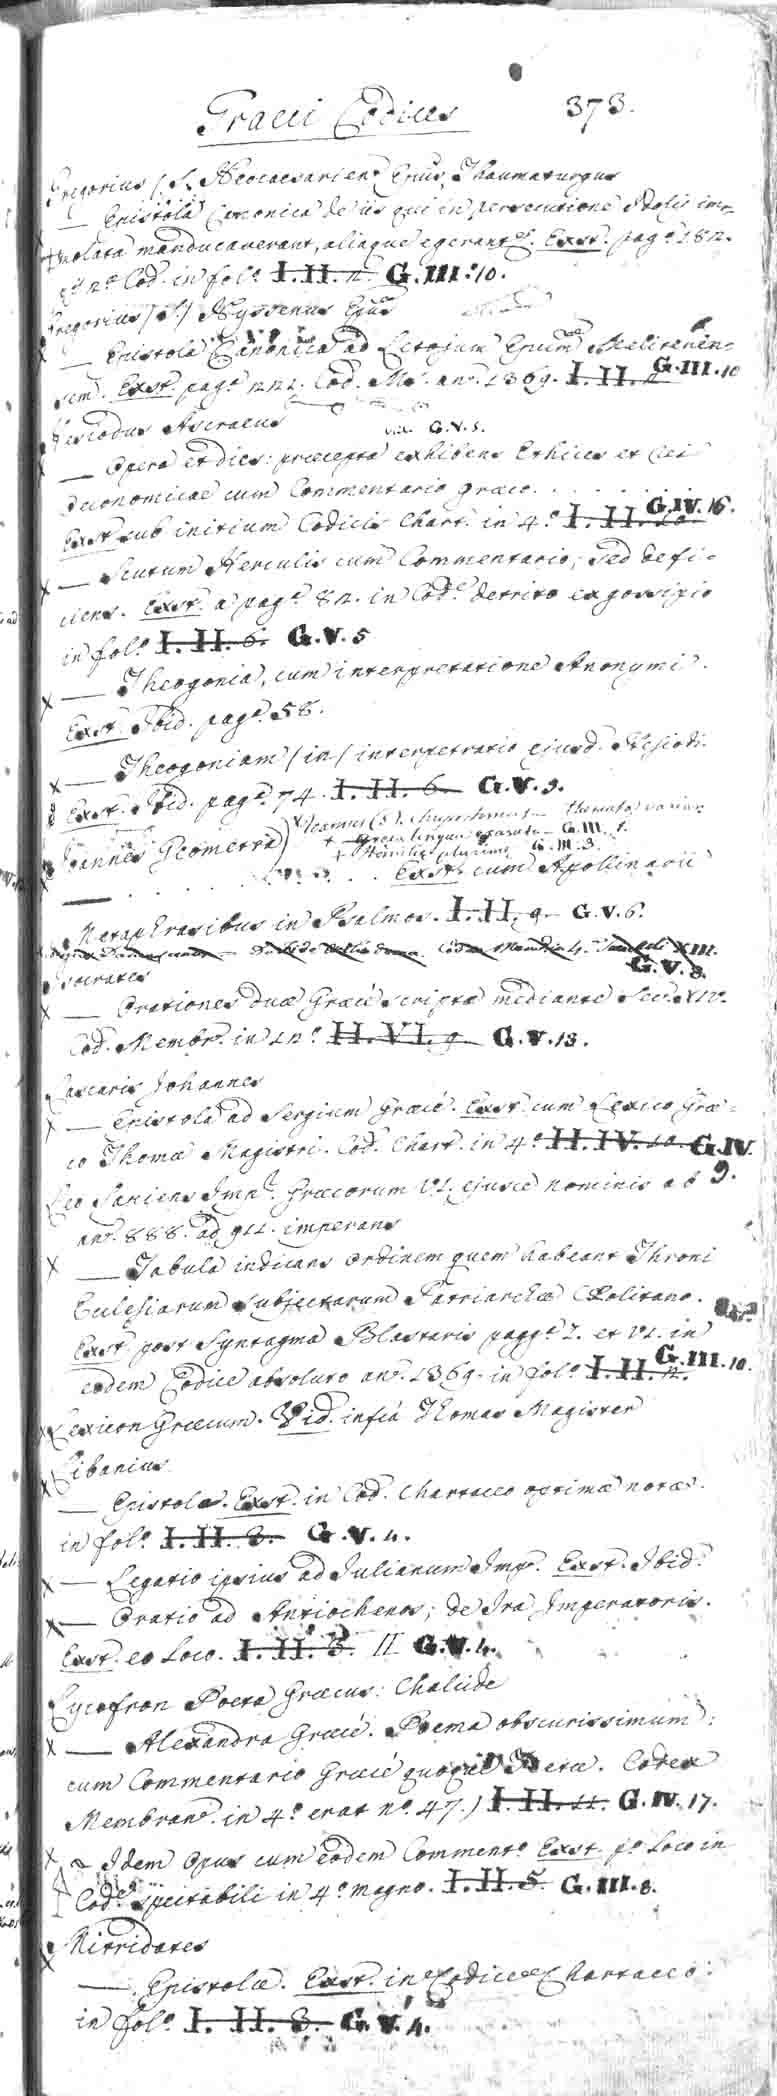 Graeci Codices 373.
Gregorius (S.) Neocaesarien. Epus, Thaumaturgus
— Epistola Canonica de iis qui in persecutione Idolis im-
molata manducaverant, aliaque egerant. Exst. pag. 182.
Cod. in fol. I. II. 2. G.III.10.
Gregorius (S.) Nyssenus Epus
— Epistola Canonica ad Letojum Epum Melitenen-
sem. Exst. pag. 221. Cod. Ms. an. 1369. I. II. 2 G.III.10
Hesiodus Ascraeus
G.V.5.
— Opera et dies: praecepta exhibens Ethices et rei
Oeconomicae cum Commentario graeco.
Exst. sub initium Codicis Chart. in 4.o I. II. 10. G.IV.16.
— Scutum Herculis cum Commentario; sed defi-
ciens. Exst. a pag. 82. in Cod. detrito ex gossipio
in fol. I. II. 6. G.V.5
— Theogonia, cum interpretatione Anonymi.
Exst. Ibid. pag. 58.
— Theogoniam (in) interpretatio ejusd. Hesiodi.
Exst. Ibid. pag. 74. I. II. 6. G.V.9.
Joannes (S.) Chrysostomus — themata varia
+ Graeca lingua exarata — G.III.1.
+ Homiliae plurimae G.III.3.
Joannes Geometra
— . . . . . . Exst. cum Apollinarii
Metaphrasibus in Psalmos. I. II. 9. G.V.6.
XIII.
G.V.8.
Isocrates
— Orationes duae Graece scriptae mediante Sec. XIV.
Cod. Membr. in 12.o II. VI. 9. G.V.13.
Lascaris Johannes
— Epistola ad Sergium Graece. Exst. cum Lexico Grae-
co Thomae Magistri. Cod. Chart. in 4.o II. IV. 10. G.IV.
9.
Leo Sapiens Imp. Graecorum VI. ejusce nominis ab
an. 888. ad 911. imperans
— Tabula indicans ordinem quem habeant Throni
Ecclesiarum subjectarum Patriarchae CPolitano.
Exst. post Syntagma Blastaris pagg. I. et VI. in
eodem Codice absoluto an. 1369. in fol. I. II. 2. G.III.10.
Lexicon Graecum. Vid. infra Thomas Magister
Libanius
— Epistolae. Exst. in Cod. Chartaceo optimae notae.
in fol. I. II. 3. G.V.4.
— Legatio ipsius ad Julianum Imp. Exst. Ibid.
— Oratio ad Antiochenos; de Ira Imperatoris.
Exst. eo loco. I. II. 3. II G.V.4.
Lycofron Poeta Graecus: Chalcide
— Alexandra Graece. Poema obscurissimum:
cum Commentario Graece quoque Codex
Membran. in 4.o erat n.o 47.) I. II. 11. G.IV.17.
Idem Opus cum eodem Comment.o Exst. p.o loco in
Cod. spectabili in 4.o magno. I. II. 5. G.III.8.
Mitridates
— Epistolae. Exst. in Codice Chartaceo:
in fol. I. II. 3. G.V.4.